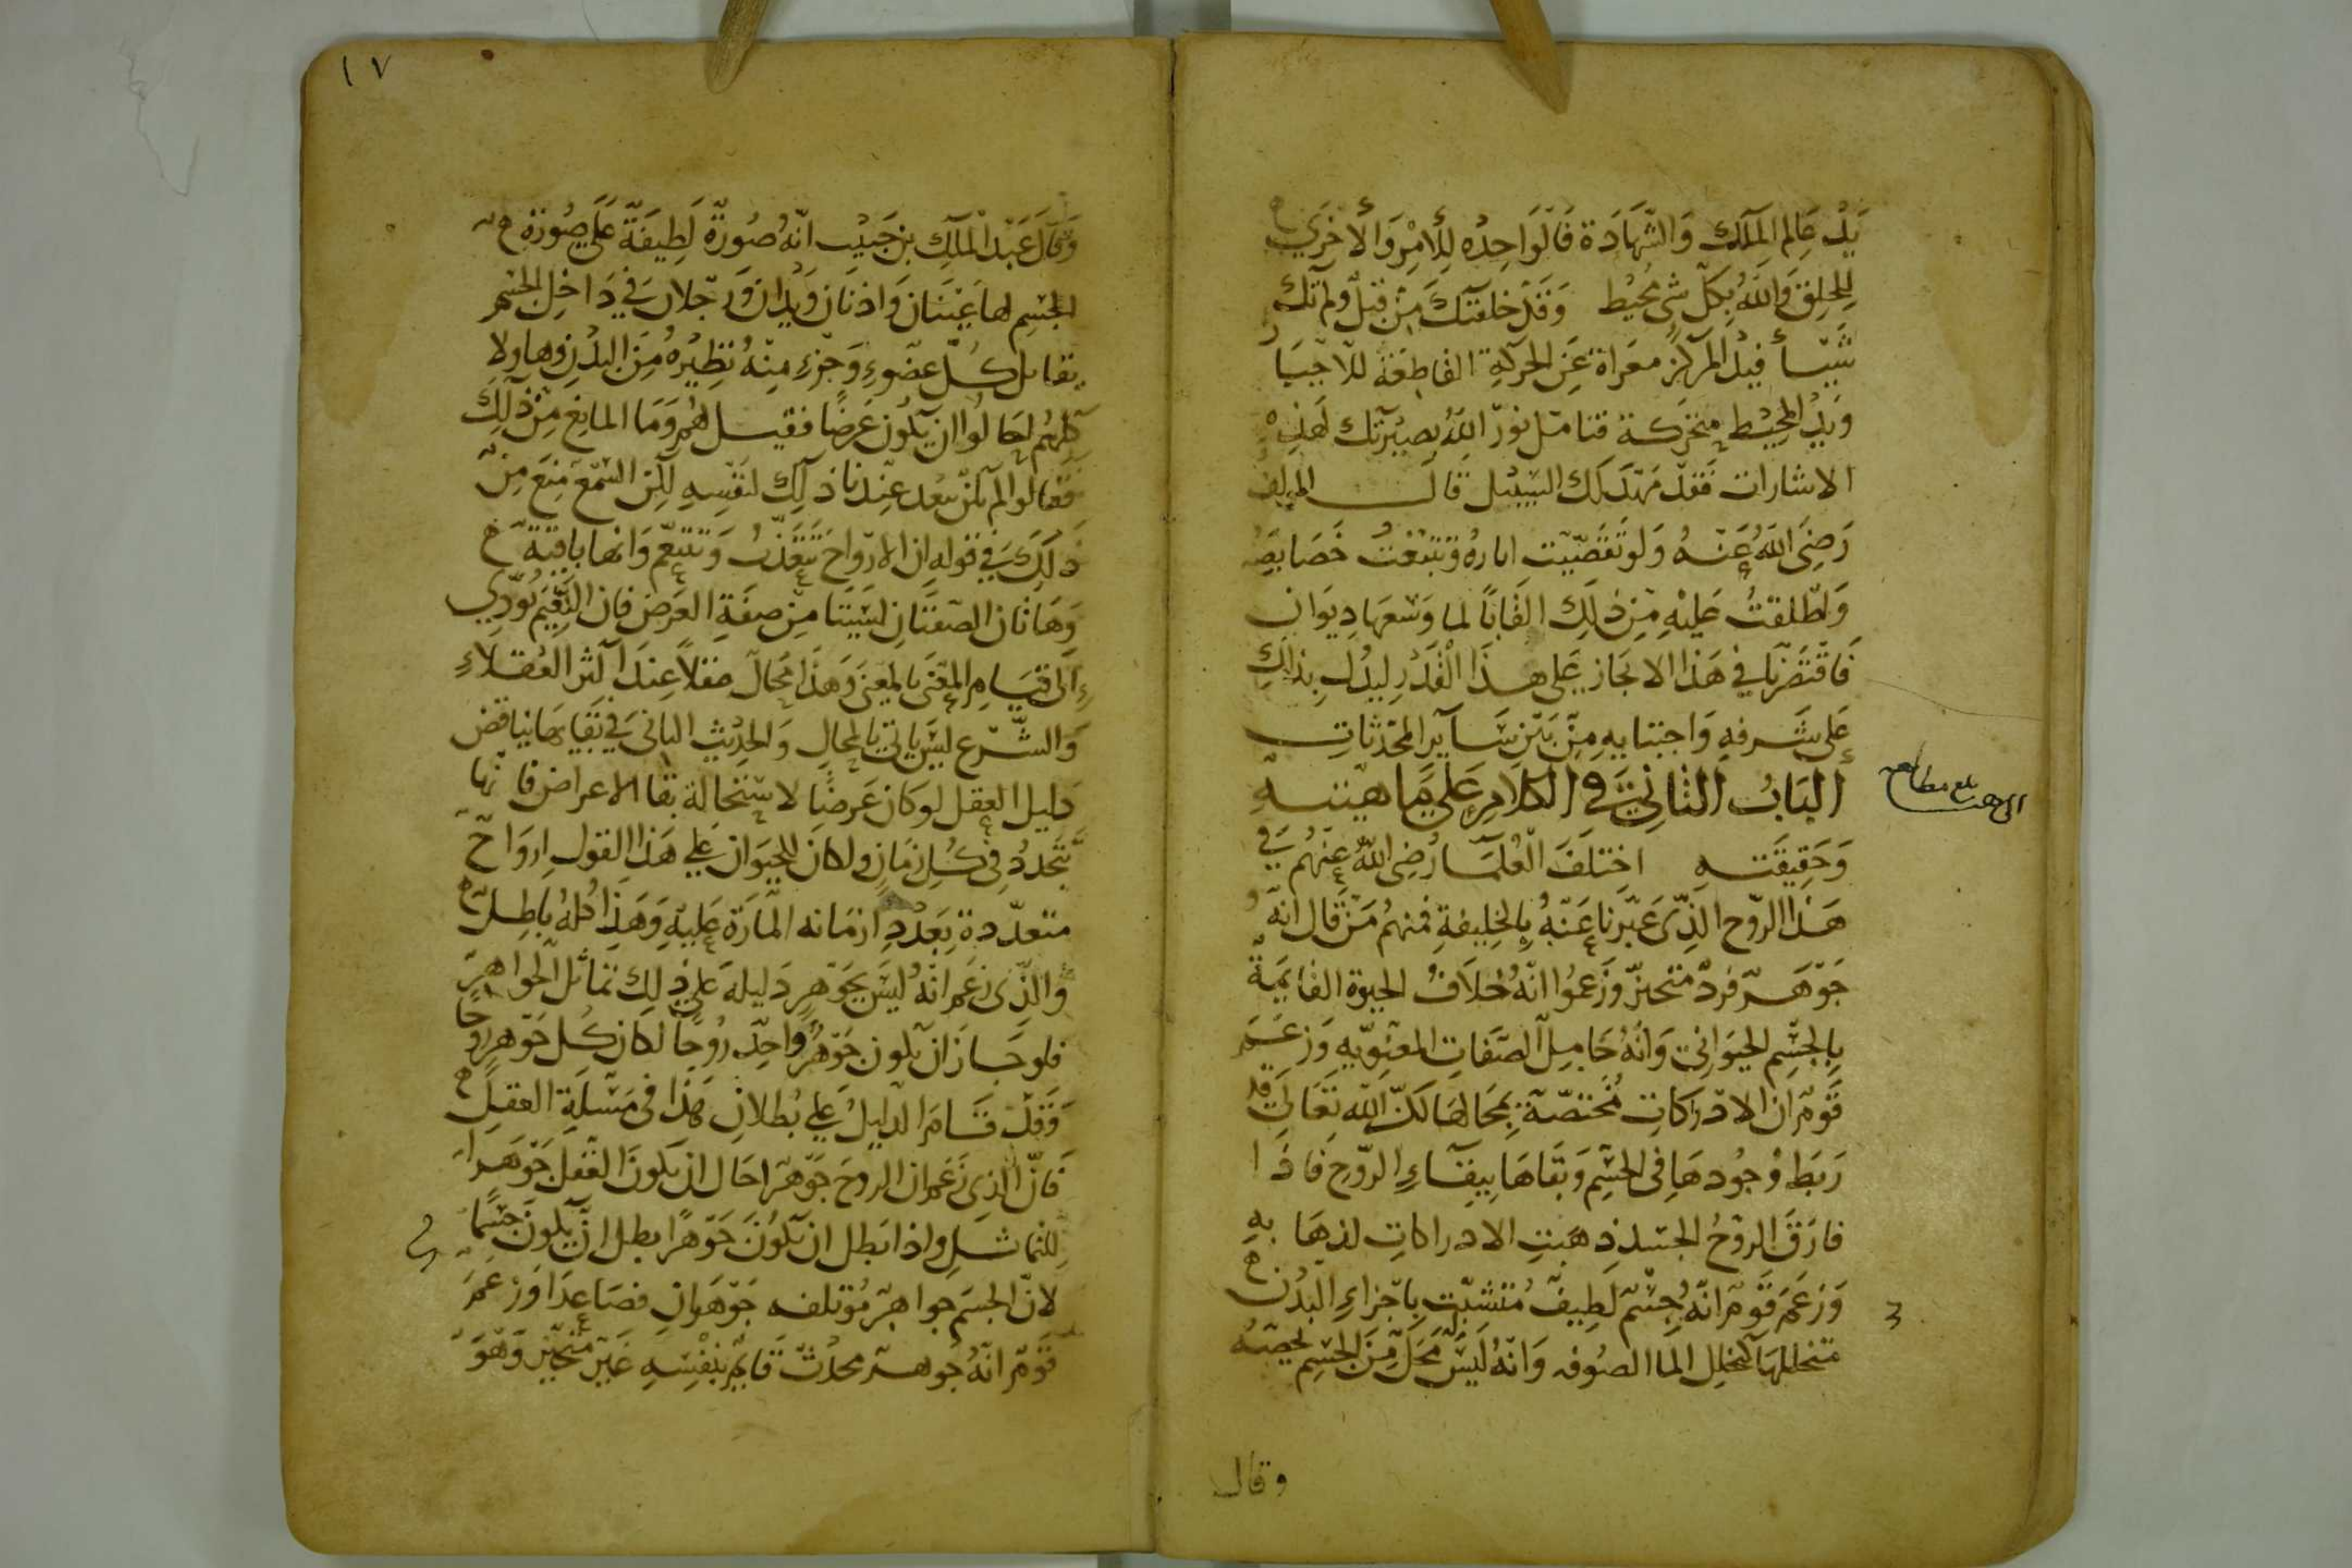 يد عالم الملك والشهادة فالواحده للأمر والأخرى
للخلق والله بكل شى محيط وقد خلقتك من قبل ولم تك
شيأ فيد المركز معراة عن الحركة القاطعة للاحيا
ويد المحيط متحركة فتامل نور الله بصيرتك لهذه
الاشارات فقد مهد لك السبيل قال المولف
رضى الله عنه ولو تقصيت اثاره وتتبعت خصايصه
وطلقت عليه من ذلك القابا لما وسعها ديوان
فاقتصرنا في هذا الايجاز على هذا القدر ليدل بذلك
على شرفه واجتبايه من بين ساير المحدثات
الباب الثاني في الكلام على ماهيته
وحقيقته اختلف العلما رضى الله عنهم في
هذا الروح الذى عبرنا عنه بالخليفة فمنهم من قال انه
جوهر فرد متحيز وزعموا انه خلاف الحيوة القايمة
بالجسم الحيواني وانه حامل الصفات المعنويه وزعم
قوم ان الادراكات مختصة بمحالها لكن الله تعالى قد
ربط وجودها في الجسم وبقاها ببقاء الروح فاذا
فارق الروح الجسد ذهبت الادراكات لذهابه
وزعم قوم انه جسم لطيف متشبت باجزاء البدن
متخللها كتخلل الما الصوفه وانه ليس محل من الجسم يخصه
وقال
بلغ مطالعه
١٧
وقال عبد الملك بن حبيب انه صورة لطيفة على صورة
الجسم لها عينان واذنان ويدان ورجلان في داخل الجسم
يقابل كل عضو وجزء منه نظيره من البدن وهاولا
كلهم احالوا ان يكون عرضا فقيل لهم وما المانع من ذلك
فقالوا لم يكن يبعد عندنا ذلك لنفسه لكن السمع منع من
ذلك في قوله ان الارواح تتعذب وتتنعم وانها باقية
وهاتان الصفتان ليستا من صفة العرض فان النعيم يودي
الى قيام المعنى بالمعنى وهذا محال عقلا عند اكثر العقلاء
والشرع ليس ياتي بالمحال والحديث الثاني في بقايها يناقض
دليل العقل لو كان عرضا لاستحالة بقا الاعراض فانها
تتجدد في كل زمان ولكان للحيوان على هذا القول ارواح
متعددة بعدد ازمانه المارة عليه وهذا كله باطل
والذى زعم انه ليس بجوهر دليله على ذلك تماثل الجواهر
فلو جاز ان يكون جوهر واحد روحا لكان كل جوهر روحا
وقد قام الدليل على بطلان هذا في مسلة العقل
فان الذى زعم ان الروح جوهر احال ان يكون العقل جوهرا
للتماثل واذا بطل ان يكون جوهرا بطل ان يكون جسما
لان الجسم جواهر مؤتلفه جوهران فصاعدا وزعم
قوم انه جوهر محدث قايم بنفسه غير متحيز وهو